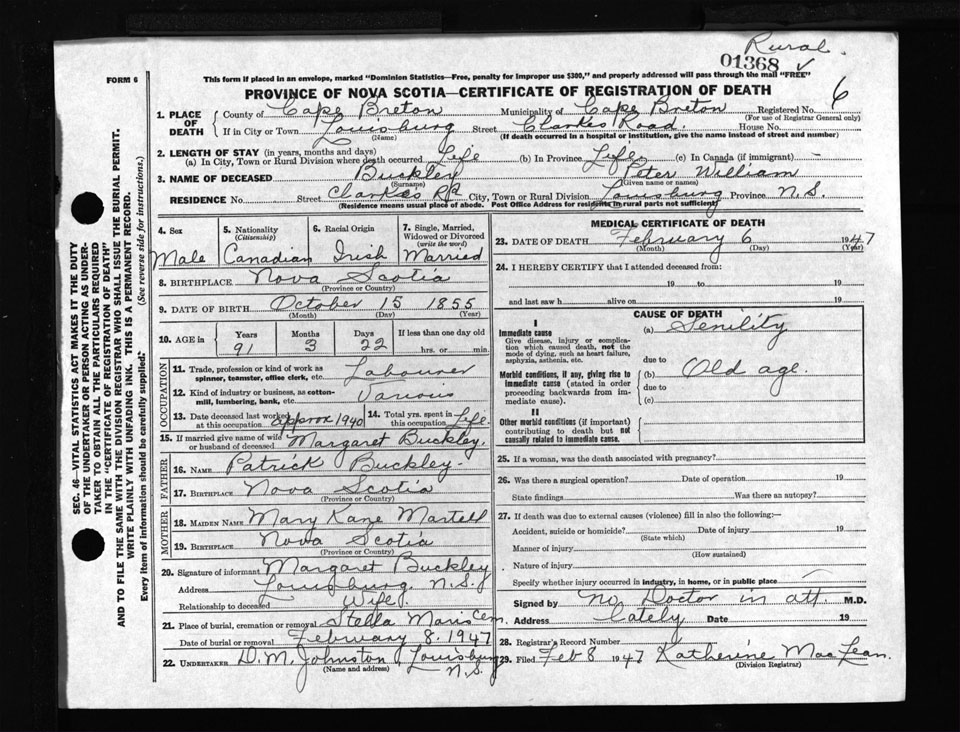 Rural.
01368 ✓
FORM 6
This form if placed in an envelope, marked "Dominion Statistics—Free, penalty for improper use $300," and properly addressed will pass through the mail "FREE"
PROVINCE OF NOVA SCOTIA—CERTIFICATE OF REGISTRATION OF DEATH
6
1. PLACE OF DEATH { County of Cape Breton Municipality of Cape Breton Registered No.
(For use of Registrar General only)
If in City or Town Louisburg Street Clarkes Road House No.
(Name) (If death occurred in a hospital or institution, give the name instead of street and number)
2. LENGTH OF STAY (in years, months and days)
(a) In City, Town or Rural Division where death occurred Life (b) In Province Life (c) In Canada (if immigrant) —
3. NAME OF DECEASED Buckley Peter William
(Surname) (Given name or names)
RESIDENCE No. Street Clarkes Rd City, Town or Rural Division Louisburg Province N.S.
(Residence means usual place of abode. Post Office Address for residents in rural parts not sufficient)
4. Sex
Male
5. Nationality
(Citizenship)
Canadian
6. Racial Origin
Irish
7. Single, Married, Widowed or Divorced
(write the word)
Married
8. BIRTHPLACE Nova Scotia
(Province or Country)
9. DATE OF BIRTH October 15 1855
(Month) (Day) (Year)
10. AGE in Years Months Days If less than one day old
91 3 22 hrs. or min.
OCCUPATION
11. Trade, profession or kind of work as spinner, teamster, office clerk, etc. Labourer
12. Kind of industry or business, as cotton-mill, lumbering, bank, etc. Various
13. Date deceased last worked at this occupation approx 1940
14. Total yrs. spent in this occupation Life.
15. If married give name of wife or husband of deceased Margaret Buckley.
FATHER
16. NAME Patrick Buckley.
17. BIRTHPLACE Nova Scotia
(Province or Country)
MOTHER
18. MAIDEN NAME Mary Martell
19. BIRTHPLACE Nova Scotia
(Province or Country)
20. Signature of informant Margaret Buckley
Address Louisburg. N.S.
Relationship to deceased Wife.
21. Place of burial, cremation or removal Stella Maris Cem.
Date of burial or removal February 8. 1947
22. UNDERTAKER D.M. Johnston Louisburg N.S.
(Name and address)
MEDICAL CERTIFICATE OF DEATH
23. DATE OF DEATH February 6 1947
(Month) (Day) (Year)
24. I HEREBY CERTIFY that I attended deceased from:
19 to 19
and last saw h alive on 19
CAUSE OF DEATH
I
Immediate cause
Give disease, injury or complication which caused death, not the mode of dying, such as heart failure, asphyxia, asthenia, etc.
(a) Senility
due to
Morbid conditions, if any, giving rise to immediate cause (stated in order proceeding backwards from immediate cause).
(b) Old age.
due to
(c)
II
Other morbid conditions (if important) contributing to death but not causally related to immediate cause.
25. If a woman, was the death associated with pregnancy?
26. Was there a surgical operation? Date of operation 19
State findings Was there an autopsy?
27. If death was due to external causes (violence) fill in also the following:—
Accident, suicide or homicide? Date of injury 19
(State which)
Manner of injury
(How sustained)
Nature of injury
Specify whether injury occurred in industry, in home, or in public place —
Signed by No Doctor in att. M.D.
Address lately Date 19
28. Registrar's Record Number
29. Filed Feb 8 1947 Katherine MacLean.
(Division Registrar)
SEC. 46—VITAL STATISTICS ACT MAKES IT THE DUTY
OF THE UNDERTAKER OR PERSON ACTING AS UNDER-
TAKER TO OBTAIN ALL THE PARTICULARS REQUIRED
IN THE "CERTIFICATE OF REGISTRATION OF DEATH"
AND TO FILE THE SAME WITH THE DIVISION REGISTRAR WHO SHALL ISSUE THE BURIAL PERMIT.
WRITE PLAINLY WITH UNFADING INK. THIS IS A PERMANENT RECORD.
Every item of information should be carefully supplied: (See reverse side for instructions.)